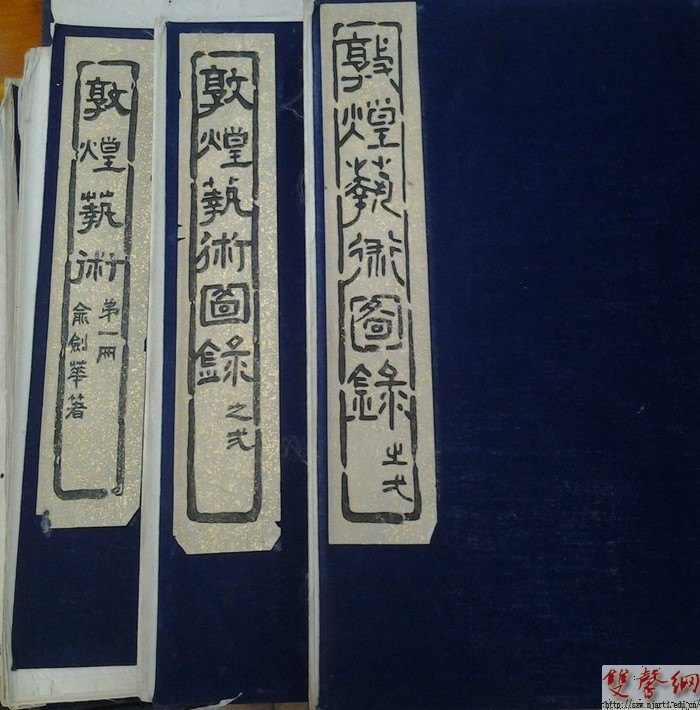 敦煌藝術
第一冊
俞劍華著
敦煌藝術圖錄
之弍
敦煌藝術圖錄
之弌
雙馨網
http://sxw.njarti.edu.cn/